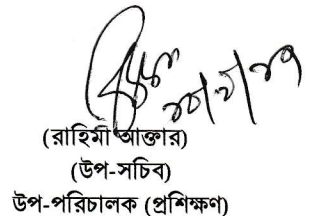 (রাহিমী আক্তার)
(উপ-সচিব)
উপ-পরিচালক (প্রশিক্ষণ)